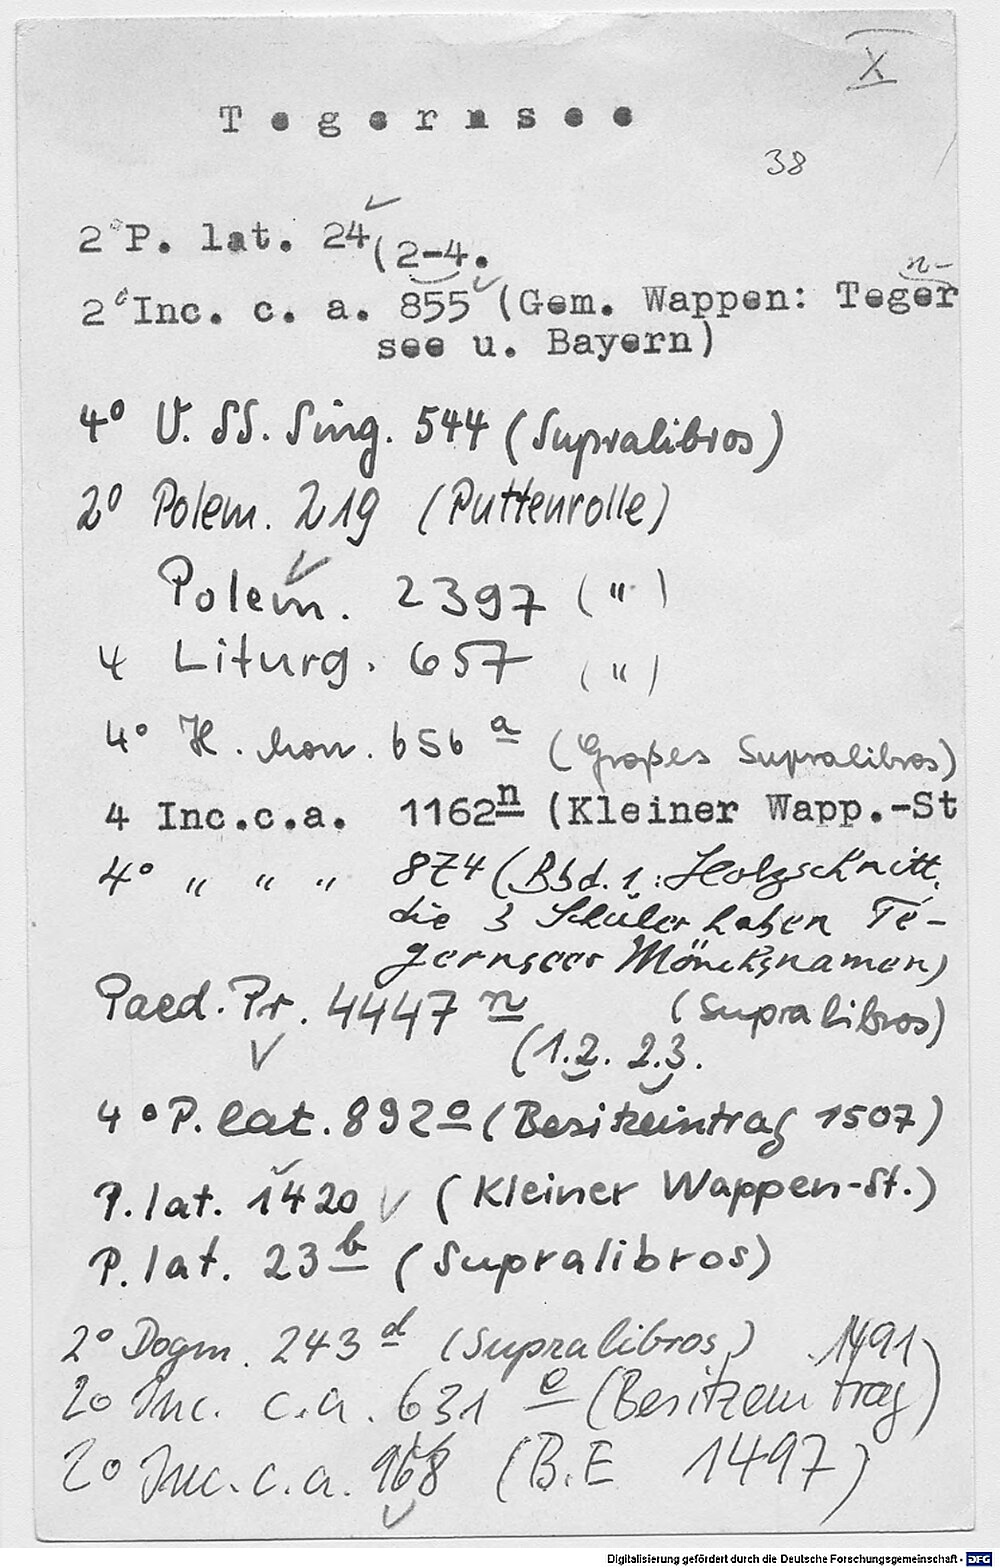 X
Tegernsee
38
2° P. lat. 24 (2-4.
2° Inc. c. a. 855 (Gem. Wappen: Teger n-
see u. Bayern)
4° V. SS. Sing. 544 (Supralibros)
2° Polem. 219 (Puttenrolle)
Polem. 2397 (")
4 Liturg. 657 (")
4° H. mon. 656 a (Großes Supralibros)
4 Inc.c.a. 1162n (Kleiner Wapp.-St
4° " " " 874 (Bbd. 1: Holzschnitt,
die 3 Schüler haben Te-
gernseer Mönchsnamen)
Paed. Pr. 4447 n (Supralibros)
(1.2. 2.3.
4° P. lat. 892 o (Besitzeintrag 1507)
P. lat. 1420 (Kleiner Wappen-St.)
P. lat. 23 b (Supralibros)
2° Dogm. 243 d (Supralibros) 1491
2° Inc. c.a. 631 e (Besitzeintrag)
2° Inc. c.a. 968 (B.E 1497)
Digitalisierung gefördert durch die Deutsche Forschungsgemeinschaft - DFG